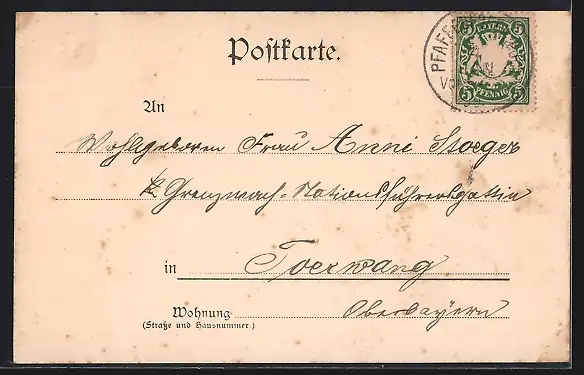 Postkarte.
BAYERN
5 5
PFENNIG
5 5
An
Wohlgeboren Frau Anni Stoeger
k. Grenzwach-Stationsführersgattin
in Toerwang
Wohnung Oberbayern
(Straße und Hausnummer.)